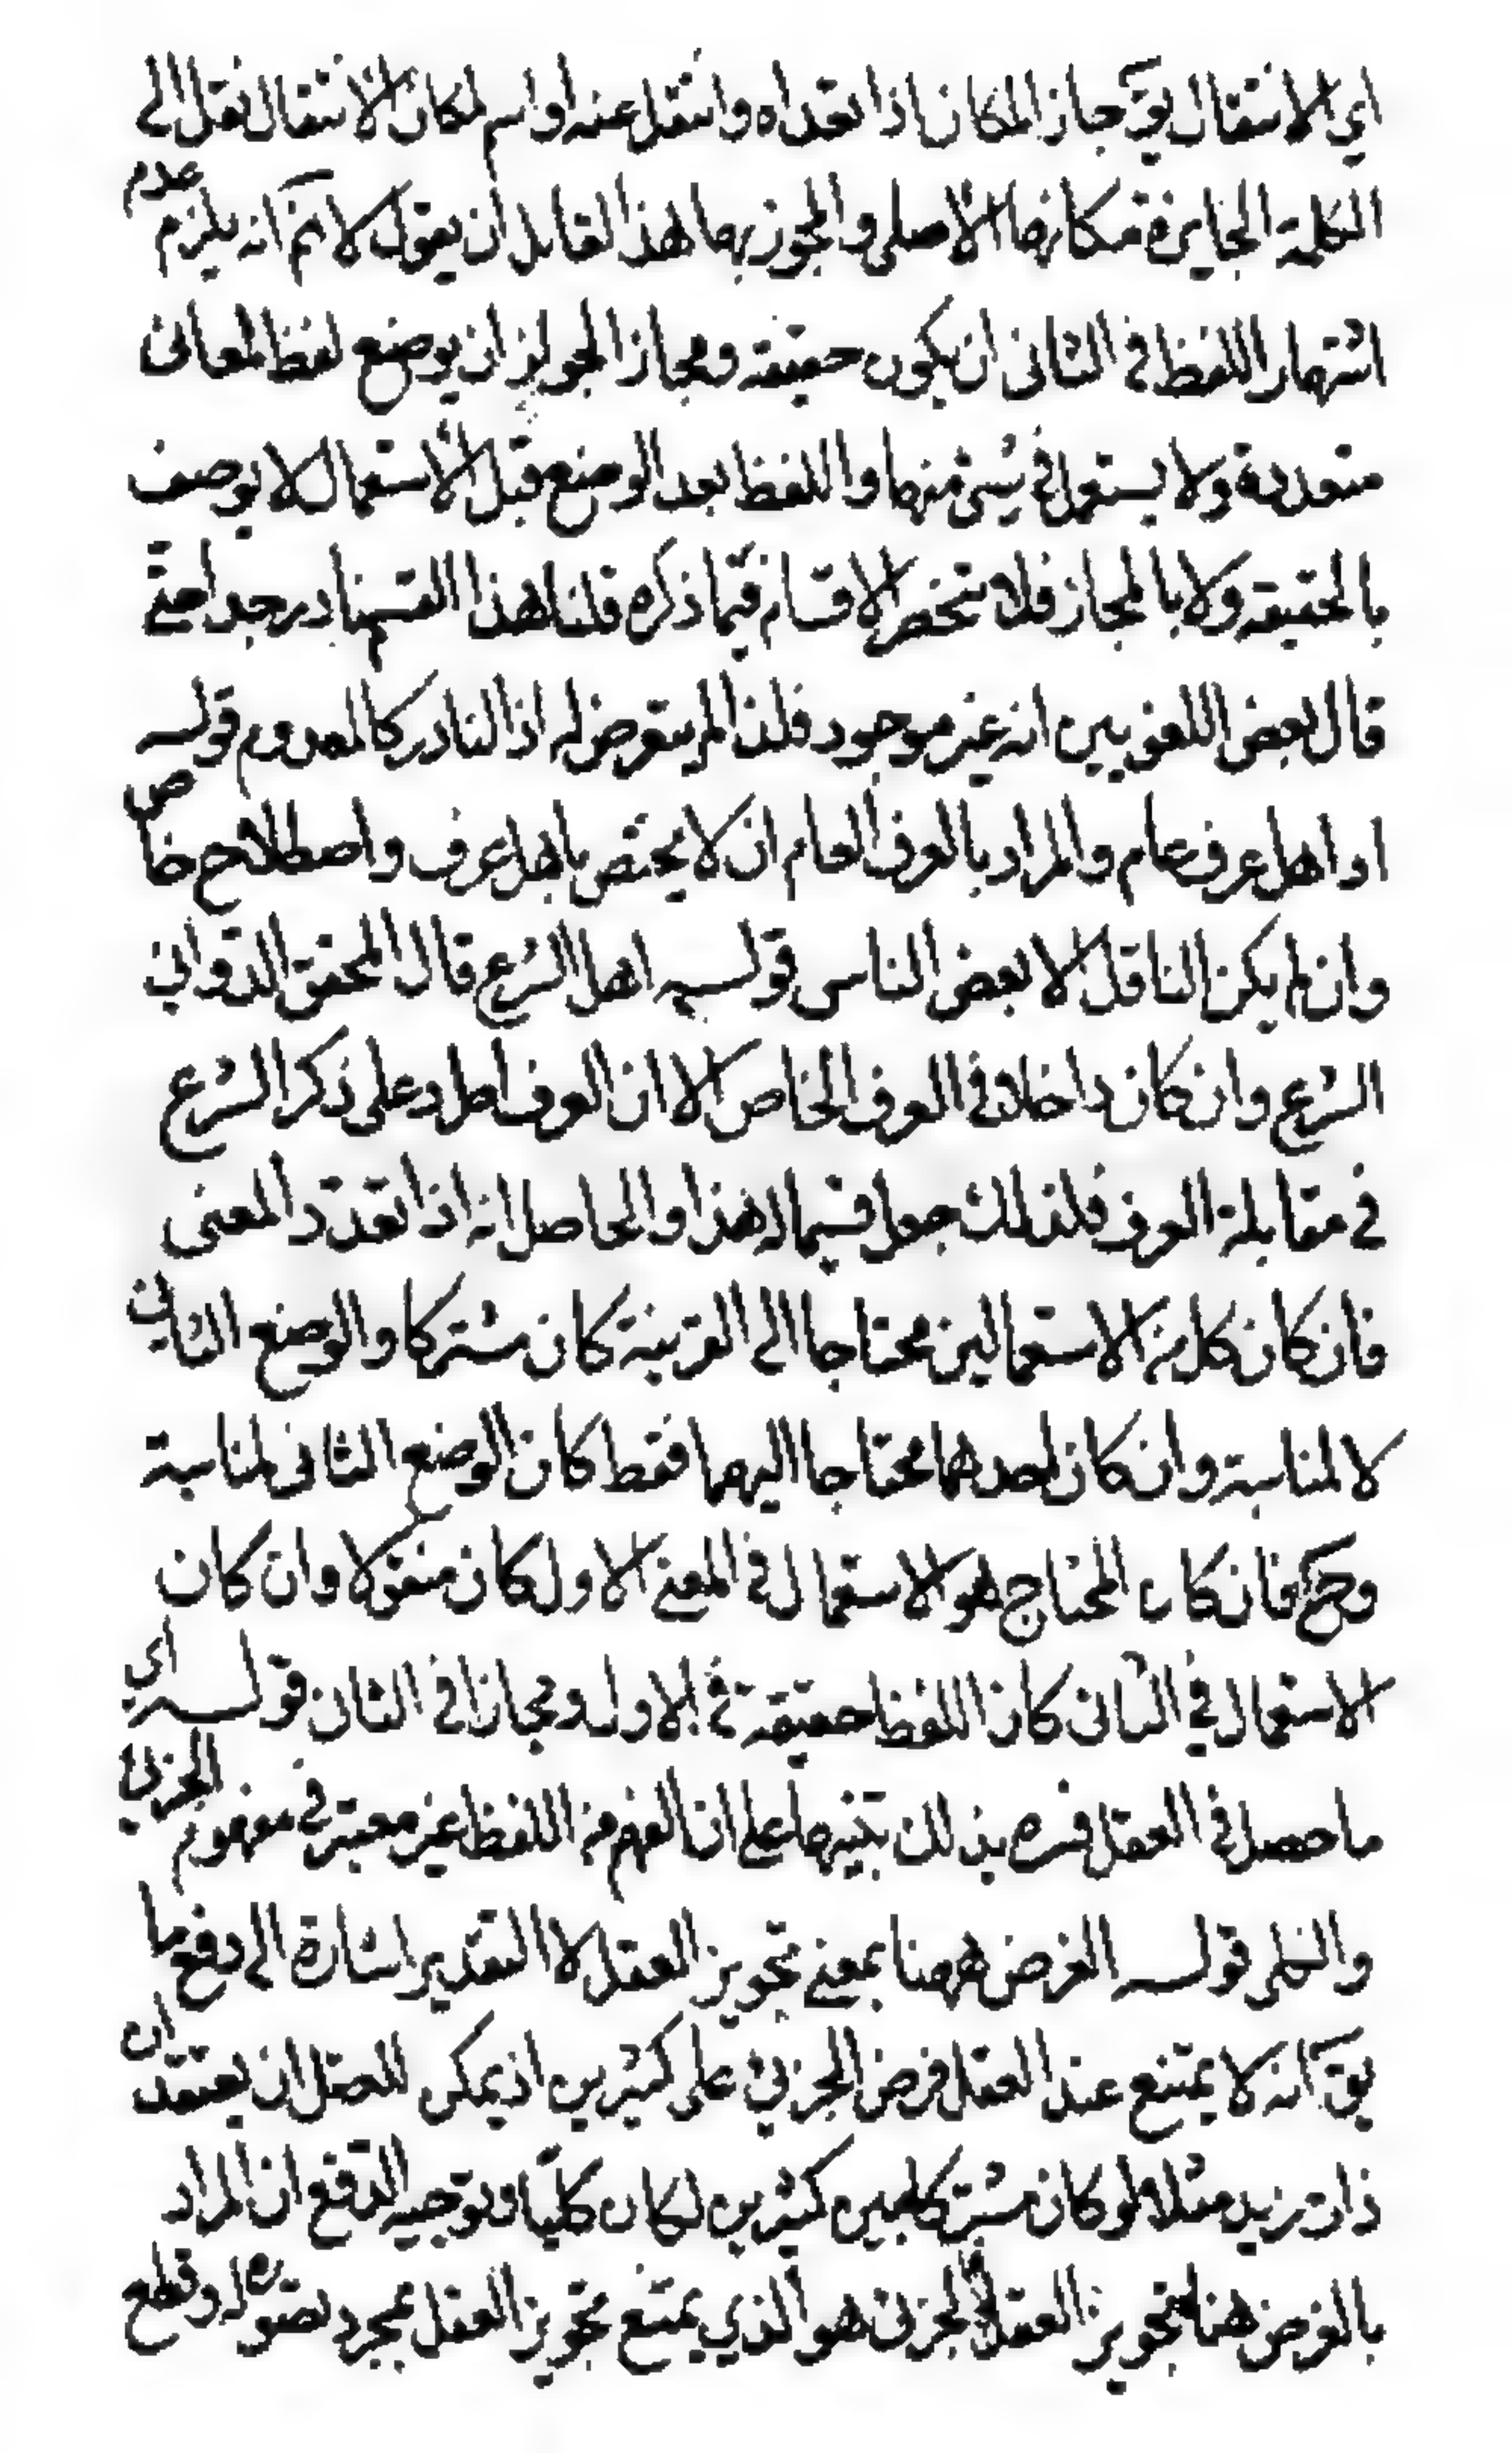 اي الانتقال يق جاز المكان اذا تعداه وانتقل عنه او اسم لمكان الانتقال نقل الى
الكلمة الجايزة مكانها الاصلى والمجوز بها هذا لقايل ان يقول لا نم انه يلزم عدم
اشتهار اللفظ في الثانى ان يكون حقيقة ومجازا لجواز ان يوضع لفظ لمعان
متعددة ولا يستعمل في شئ منها واللفظ بعد الوضع قبل الاستعمال لا يوصف
بالحقيقة ولا بالمجاز فلا تنحصر الاقسام فيما ذكره قلنا هذا القسم نادر جدا حتى
قال بعض اللغويين انه غير موجود فلذا لم يتعرض له اذ النادر كالمعدوم قوله
او اهل عرف عام والمراد بالعرف العام ان لا يختص باهل عرف واصطلاح خاص
وان لم يكن الناقل الا بعض الناس قوله اهل الشرع قال المحقق الدواني
الشرع وان كان داخلا في العرف الخاص الا ان العرف اطرد على ذكر الشرع
في مقابلة العرف فلذلك جعل قسيما له هذا والحاصل انه اذا تعدد المعنى
فان كان كل من الاستعمالين محتاجا الى القرينة كان مشتركا والوضع الثاني
لا لمناسبة وان كان احدهما محتاجا اليهما فقط كان الوضع الثانى لمناسبة
وح فان كان المحتاج هو الاستعمال في المعنى الاول كان منقولا وان كان
الاستعمال في الثانى كان اللفظ حقيقة في الاول ومجازا في الثان قوله اي
ما حصل في العقل فسره بذلك تنبيها على ان الفهم من اللفظ غير معتبر في مفهوم الجزئي
والكلى قوله الفرض ههنا بمعنى تجويز العقل لا التقدير اشارة الى دفع ما
يق انه لا يمتنع عند العقل فرض الجزئى على كثيرين اذ يمكن للعقل ان يعتقد ان
ذات زيد مثلا لو كان مشتركا بين كثيرين لكان كليا وتوجيه الدفع ان المراد
بالفرض هنا تجويز العقل فالجزئى هو الذي يمتنع تجويز العقل بمجرد تصوره له وقطع